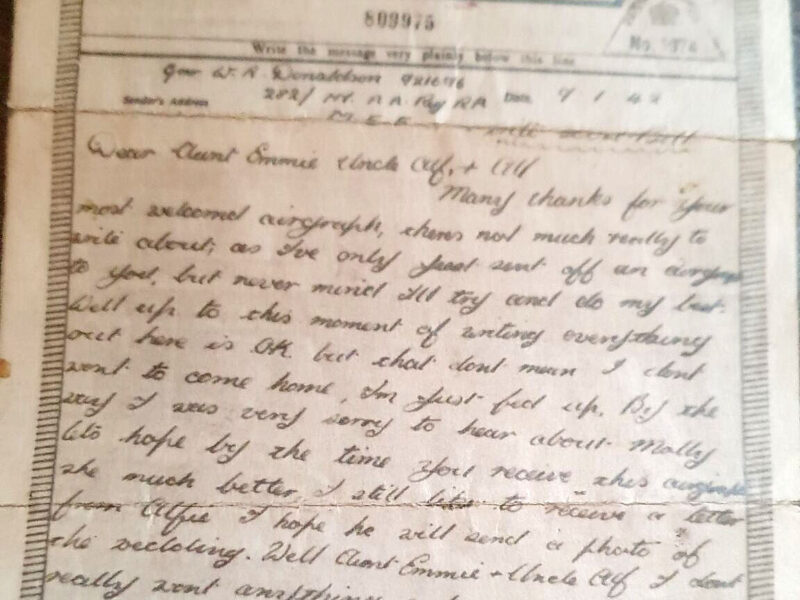 809975
No. 
Write the message very plainly below this line.
Gnr W. R. Donaldson 921696
Sender's Address 282/ Hy. A A Bty RA Date 9 1 42
M E F
Dear Aunt Emmie Uncle Alf, + All
Many thanks for your
most welcomed airgraph, theres not much really to
write about, as I've only just sent off an airgraph
to you, but never mind I'll try and do my best.
Well up to this moment of writing everything
out here is OK but that dont mean I dont
want to come home, I'm just fed up. By the
way I was very sorry to hear about Molly
lets hope by the time you receive this airgraph
she much better. I still like to receive a letter
from Alfie I hope he will send a photo of
the wedding. Well Aunt Emmie + Uncle Alf I dont
really want anything